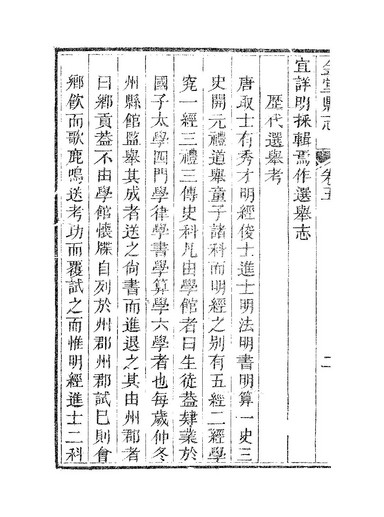 金堂縣志 卷五 二
宜詳明採輯焉作選舉志
歷代選舉考
唐取士有秀才明經俊士進士明法明書明算一史三
史開元禮道舉童子諸科而明經之別有五經二經學
究一經三禮三傳史科凡由學館者曰生徒葢肄業於
國子太學四門學律學書學算學六學者也每歲仲冬
州縣館監舉其成者送之尙書而進退之其由州郡者
曰鄉貢葢不由學館懷牒自列於州郡州郡試已則會
鄉飲而歌鹿鳴送考功而覆試之而惟明經進士二科